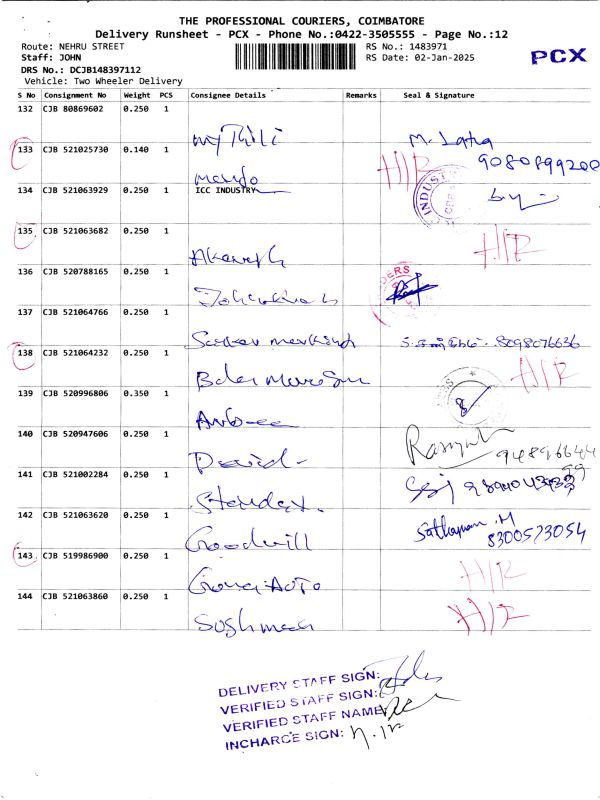 THE PROFESSIONAL COURIERS, COIMBATORE
Delivery Runsheet - PCX - Phone No.:0422-3505555 - Page No.:12
Route: NEHRU STREET RS No.: 1483971
Staff: JOHN RS Date: 02-Jan-2025
PCX
DRS No.: DCJB148397112
Vehicle: Two Wheeler Delivery
S No Consignment No Weight PCS Consignee Details Remarks Seal & Signature
132 CJB 80869602 0.250 1
myThili M. Latha
133 CJB 521025730 0.140 1 H/R
134 CJB 521063929 0.250 1 ICC INDUSTRY
INDUS
135 CJB 521063682 0.250 1 H/R
136 CJB 520788165 0.250 1
DERS
137 CJB 521064766 0.250 1
8098076636
138 CJB 521064232 0.250 1 H/R
139 CJB 520996806 0.350 1
140 CJB 520947606 0.250 1
David
141 CJB 521002284 0.250 1
142 CJB 521063620 0.250 1
Goodwill 8300573054
143 CJB 519986900 0.250 1 H/R
144 CJB 521063860 0.250 1 H/R
DELIVERY STAFF SIGN:
VERIFIED STAFF SIGN:
VERIFIED STAFF NAME:
INCHARGE SIGN: